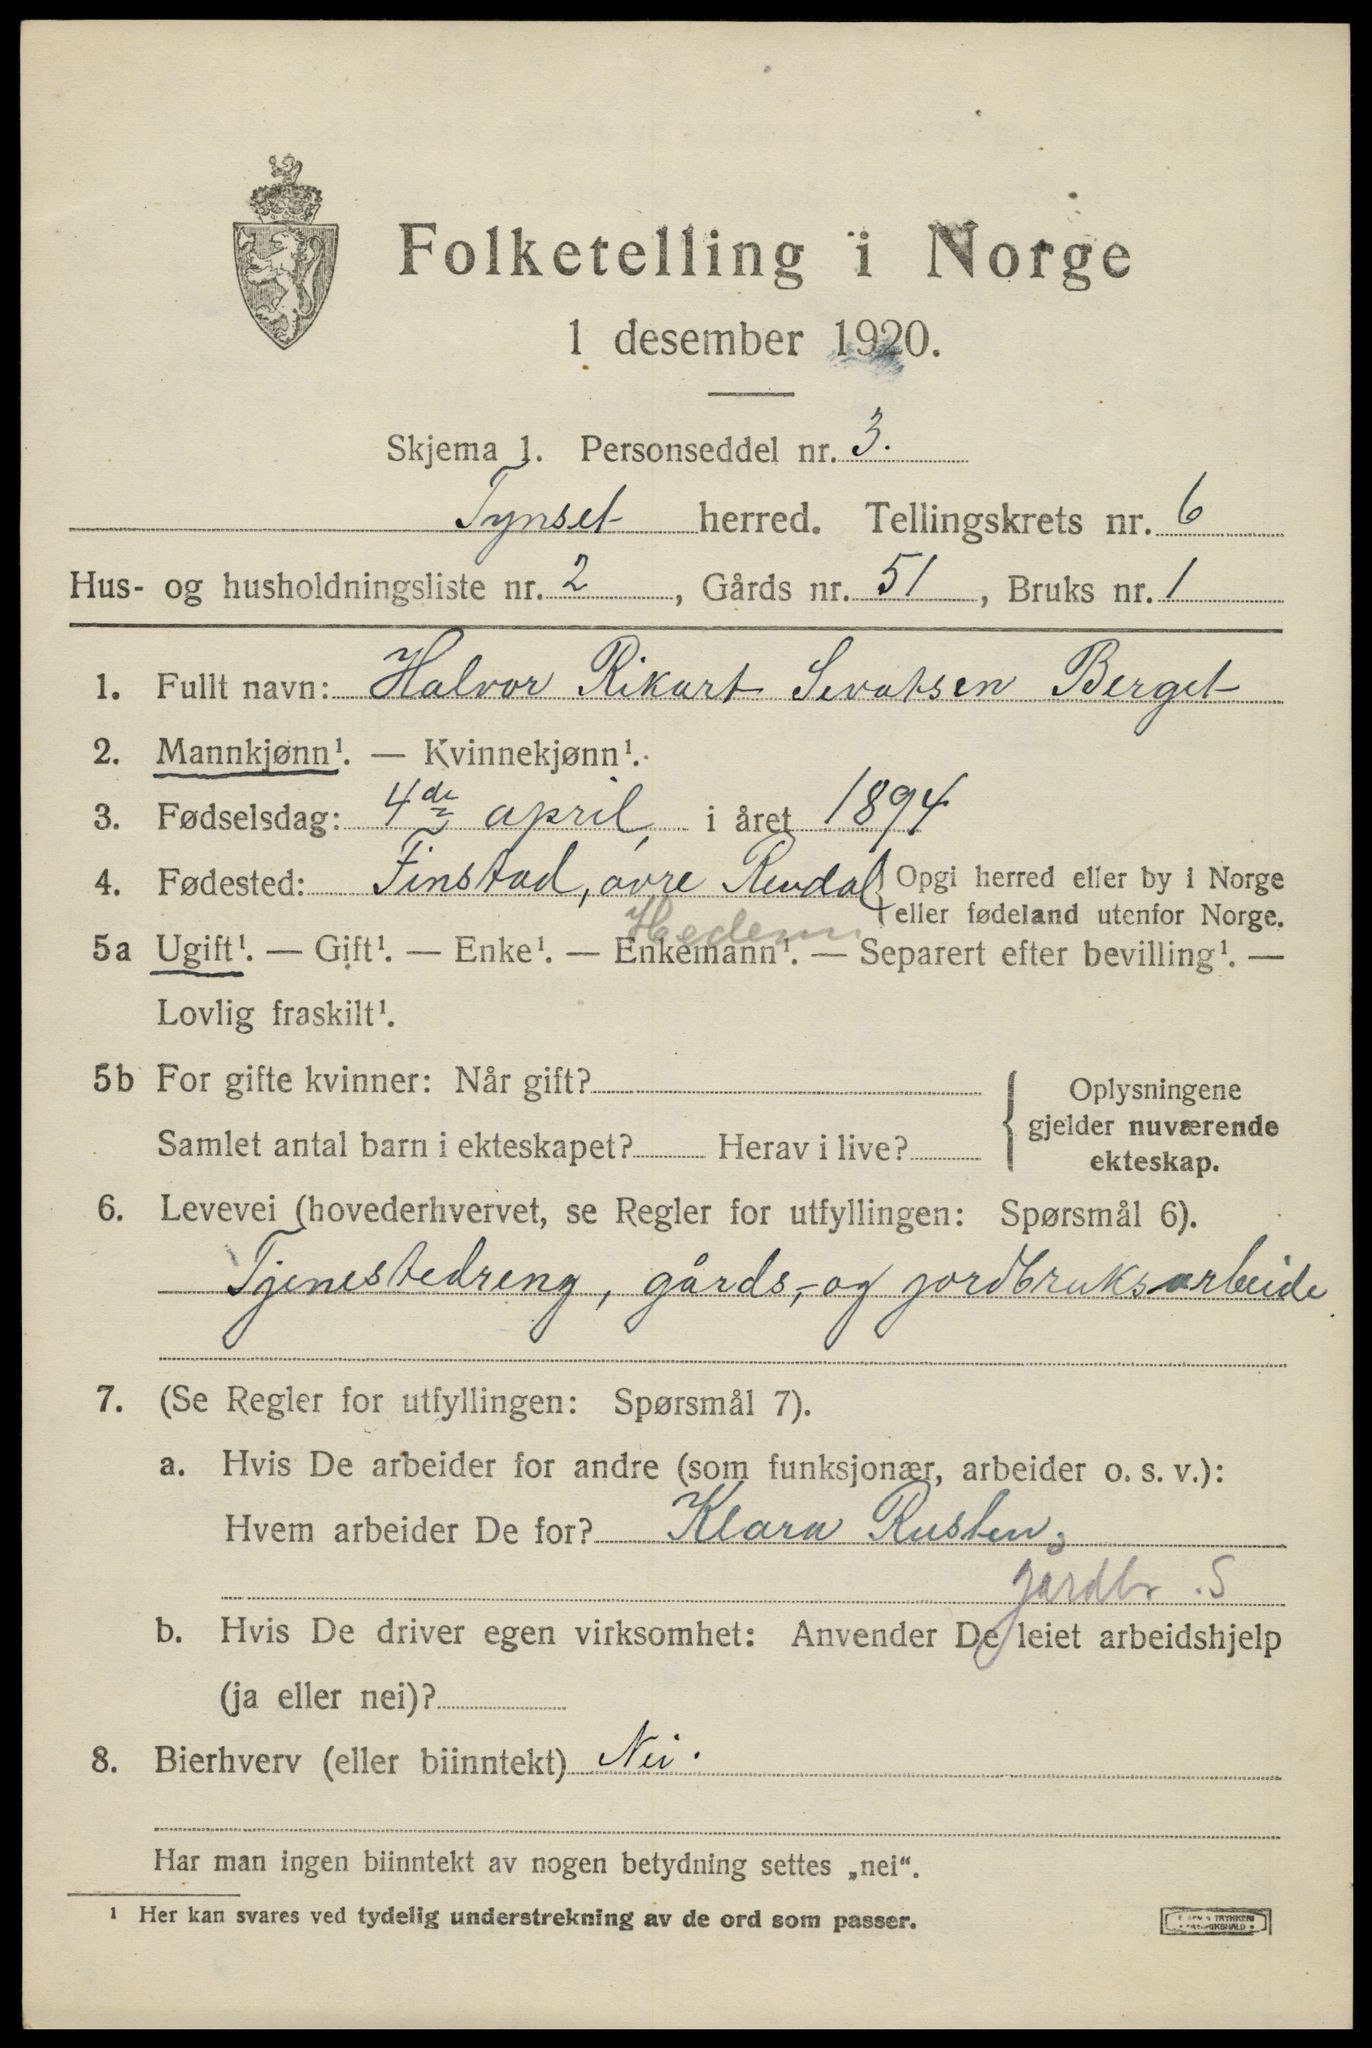 Folketelling i Norge
1 desember 1920.
Skjema 1. Personseddel nr. 3.
Tynset herred. Tellingskrets nr. 6
Hus- og husholdningsliste nr. 2, Gårds nr. 51, Bruks nr. 1
1. Fullt navn: Halvor Rikart Sevatsen Berget
2. Mannkjønn¹. — Kvinnekjønn¹.
3. Fødselsdag: 4de april, i året 1894
4. Fødested: Finstad, øvre Rendal { Opgi herred eller by i Norge
eller fødeland utenfor Norge.
Hedem
5a Ugift¹. — Gift¹. — Enke¹. — Enkemann¹. — Separert efter bevilling¹. —
Lovlig fraskilt¹.
5b For gifte kvinner: Når gift?
Samlet antal barn i ekteskapet? Herav i live?
{ Oplysningene
gjelder nuværende
ekteskap.
6. Levevei (hovederhvervet, se Regler for utfyllingen: Spørsmål 6).
Tjenestedreng, gårds,- og jordbruksarbeide
7. (Se Regler for utfyllingen: Spørsmål 7).
a. Hvis De arbeider for andre (som funksjonær, arbeider o. s. v.):
Hvem arbeider De for? Klara Rusten,
gårdbr. S
b. Hvis De driver egen virksomhet: Anvender De leiet arbeidshjelp
(ja eller nei)?
8. Bierhverv (eller biinntekt) Nei.
Har man ingen biinntekt av nogen betydning settes „nei“.
¹ Her kan svares ved tydelig understrekning av de ord som passer.